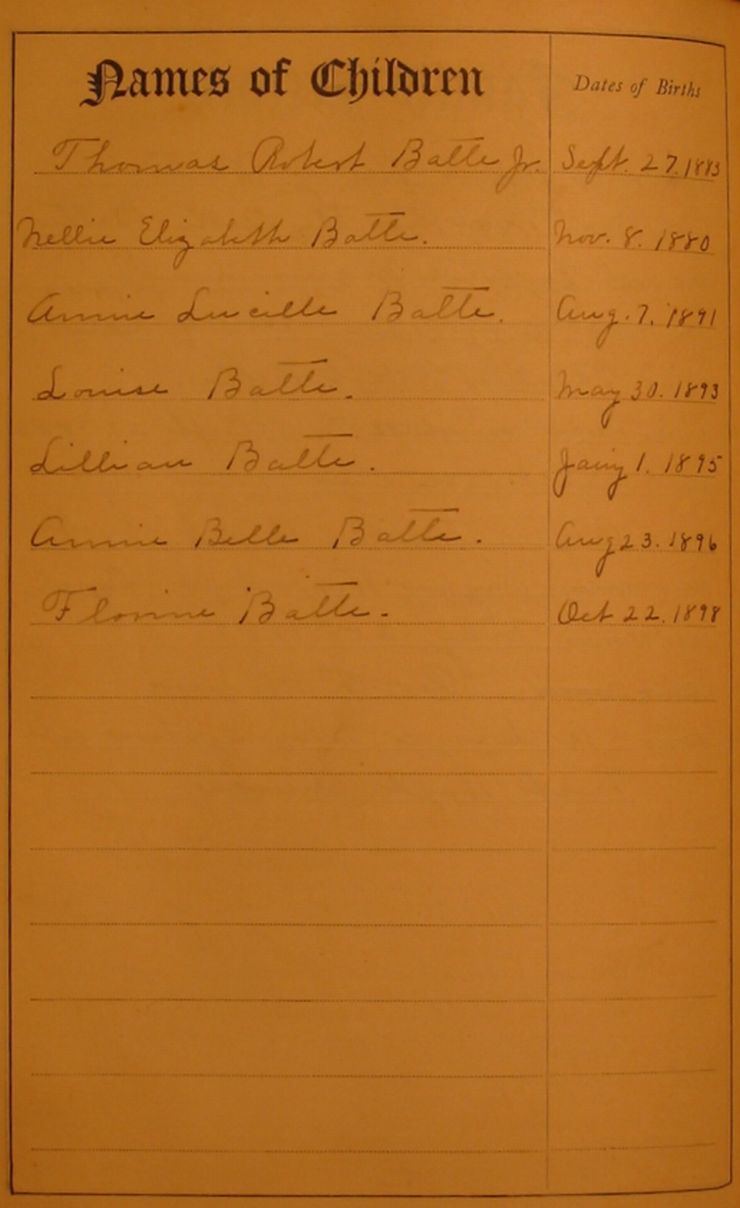 Names of Children Dates of Births
Thomas Robert Batte Jr. Sept. 27. 1883
Nellie Elizabeth Batte. Nov. 8. 1880
Annie Lucille Batte. Aug. 7. 1891
Louise Batte. May 30. 1893
Lillian Batte. Jany 1. 1895
Annie Belle Batte. Aug 23. 1896
Florine Batte. Oct 22. 1898